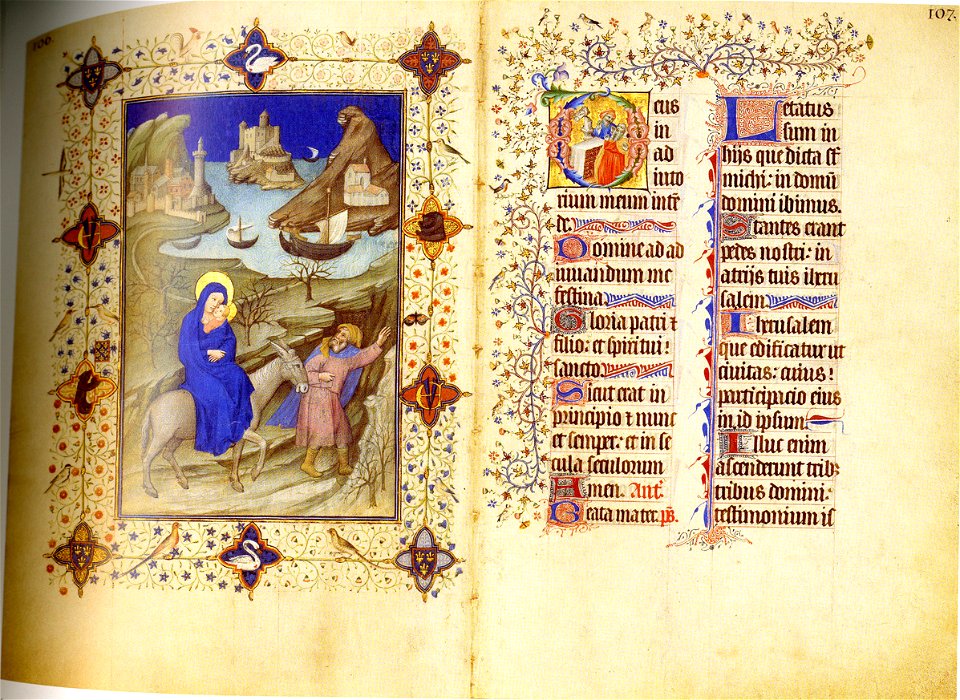 106.
107.
Deus
in
ad
iuto
rium meum intē
de.
Domine ad ad
iuuandum me
festina
Gloria patri ⁊
filio: et spiritui:
sancto.
Sicut erat in
principio ⁊ nunc
et semper: et in se
cula seculorum
Amen. Ant.
Beata mater. ps.
Letatus
sum in
hijs que dicta st
michi: in domū
domini ibimus.
Stantes erant
pedes nostri: in
atrijs tuis ihru
salem
Iherusalem
que edificatur ut
ciuitas: cuius:
participacio eius
in id ipsum.
Illuc enim
ascenderunt trib:
tribus domini:
testimonium is